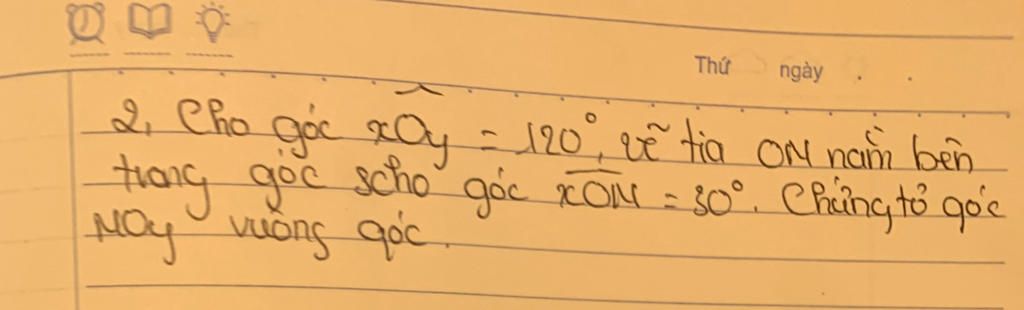 Thứ ngày . .
2, Cho góc xÔy = 120°, vẽ tia OM nằm bên
trong góc scho góc xOM = 30°. Chứng tỏ góc
MOy vuông góc.